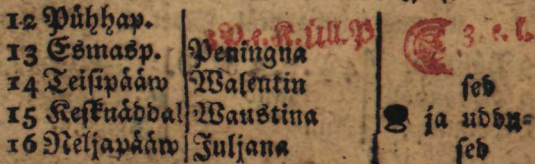 12 Pühhap. 3 P. e. K. Üll. P
13 Esmasp. Peningna 3. e. l.
14 Teisipääw Walentin sed
15 Kesknäddal Waustina ja uddu-
16 Neljapääw Juljana sed